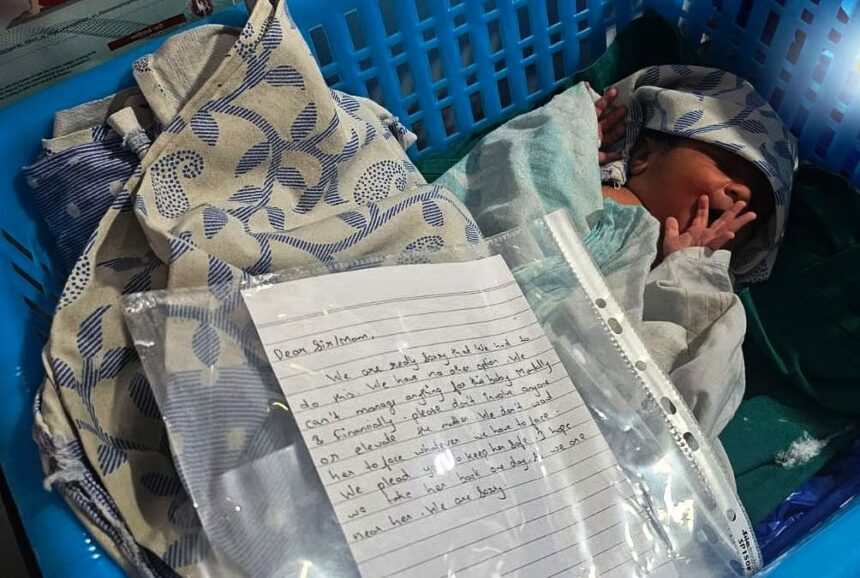 Dear Sir/Mam,
We are really sorry that we had to
do this. We have no other option. We
can't manage anything for this baby Mentally
& financially. please don't involve anyone
or elevate the matter. We don't want
her to face whatever we have to face.
We plead you to keep her safe. I hope
we take her back one day. we are
near her. We are sorry.